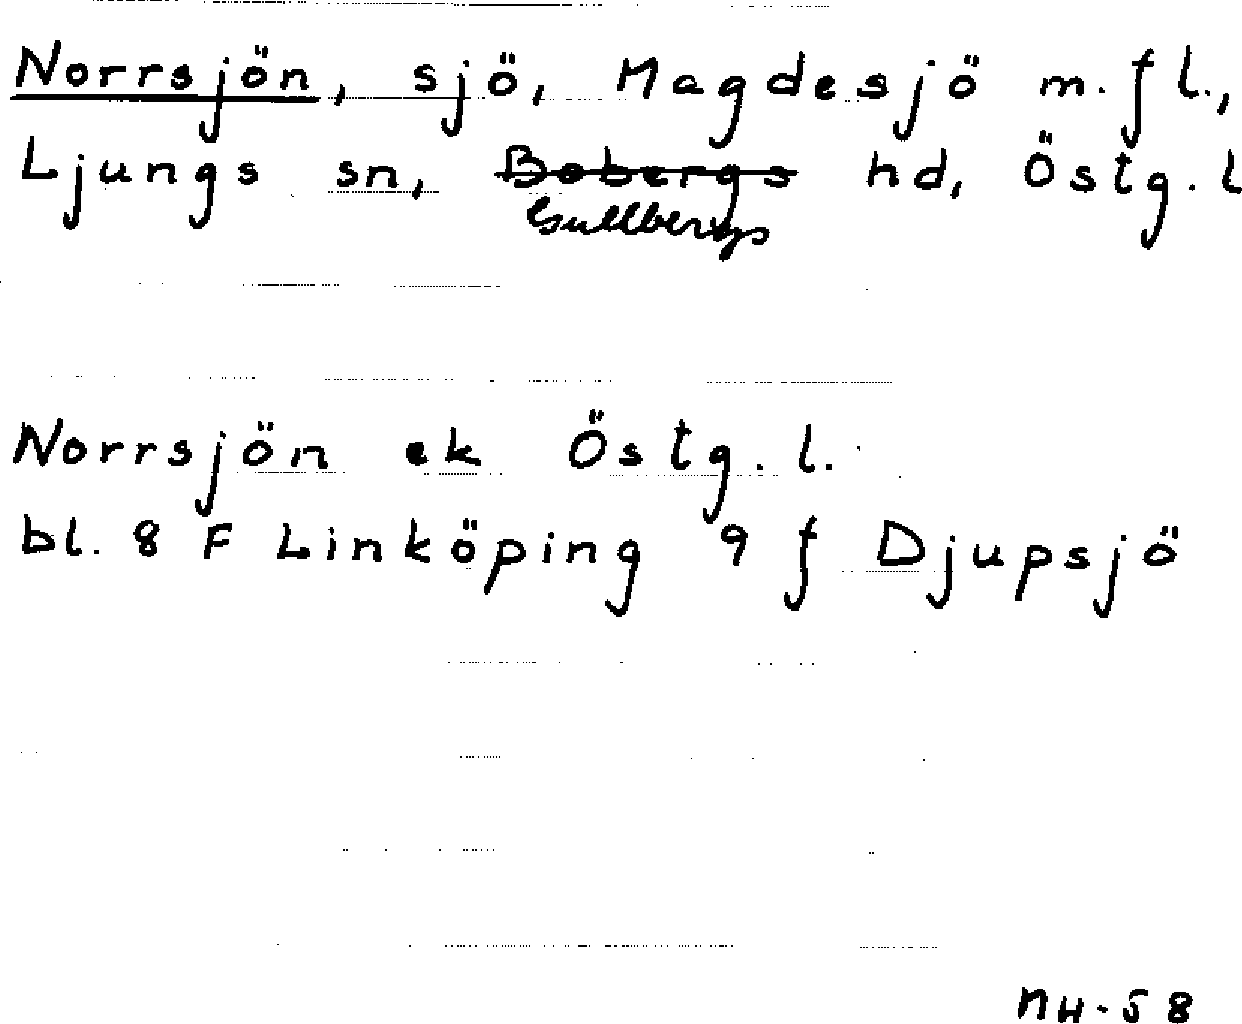 Norrsjön, sjö, Magdesjö m.fl.,
Ljungs sn, Bobergs hd, Östg.l
Gullbergs
Norrsjön ek Östg.l.
bl. 8 F Linköping 9 f Djupsjö
NH-58